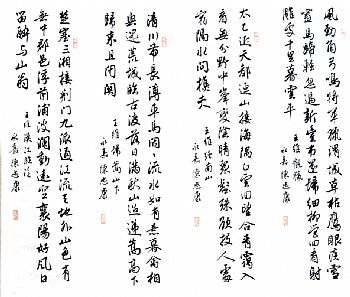 風勁角弓鳴將軍獵渭城草枯鷹眼疾雪
盡馬蹄輕忽過新豐市還歸細柳營回看射
雕處千里暮雲平
王維觀獵
永嘉陳忠康
太乙近天都連山接海隅白雲回望合青靄入
看無分野中峰變陰晴眾壑殊欲投人處
宿隔水問樵夫
王維終南山
永嘉陳忠康
清川帶長薄車馬去閑閑流水如有意暮禽相
與還荒城臨古渡落日滿秋山迢遞嵩高下
歸來且閉關
王維歸嵩山下
永嘉陳忠康
楚塞三湘接荊門九派通江流天地外山色有
無中郡邑浮前浦波瀾動遠空襄陽好風日
留醉與山翁
王維漢江臨泛
永嘉陳忠康